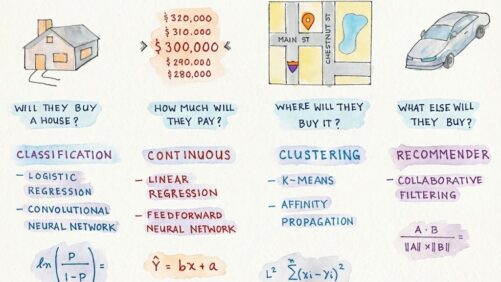 $320,000
$310,000
> $300,000 <
$290,000
$280,000
MAIN ST
CHESTNUT ST
WILL THEY BUY
A HOUSE?
HOW MUCH WILL
THEY PAY?
WHERE WILL THEY
BUY IT?
WHAT ELSE WILL
THEY BUY?
CLASSIFICATION
- LOGISTIC
REGRESSION
- CONVOLUTIONAL
NEURAL NETWORK
ln(P/1-P) =
CONTINUOUS
- LINEAR
REGRESSION
- FEEDFORWARD
NEURAL NETWORK
Ŷ = bx + a
CLUSTERING
- K-MEANS
- AFFINITY
PROPAGATION
L² Σⁿ(xi - yi)²
RECOMMENDER
- COLLABORATIVE
FILTERING
A · B
‖A‖ × ‖B‖ =